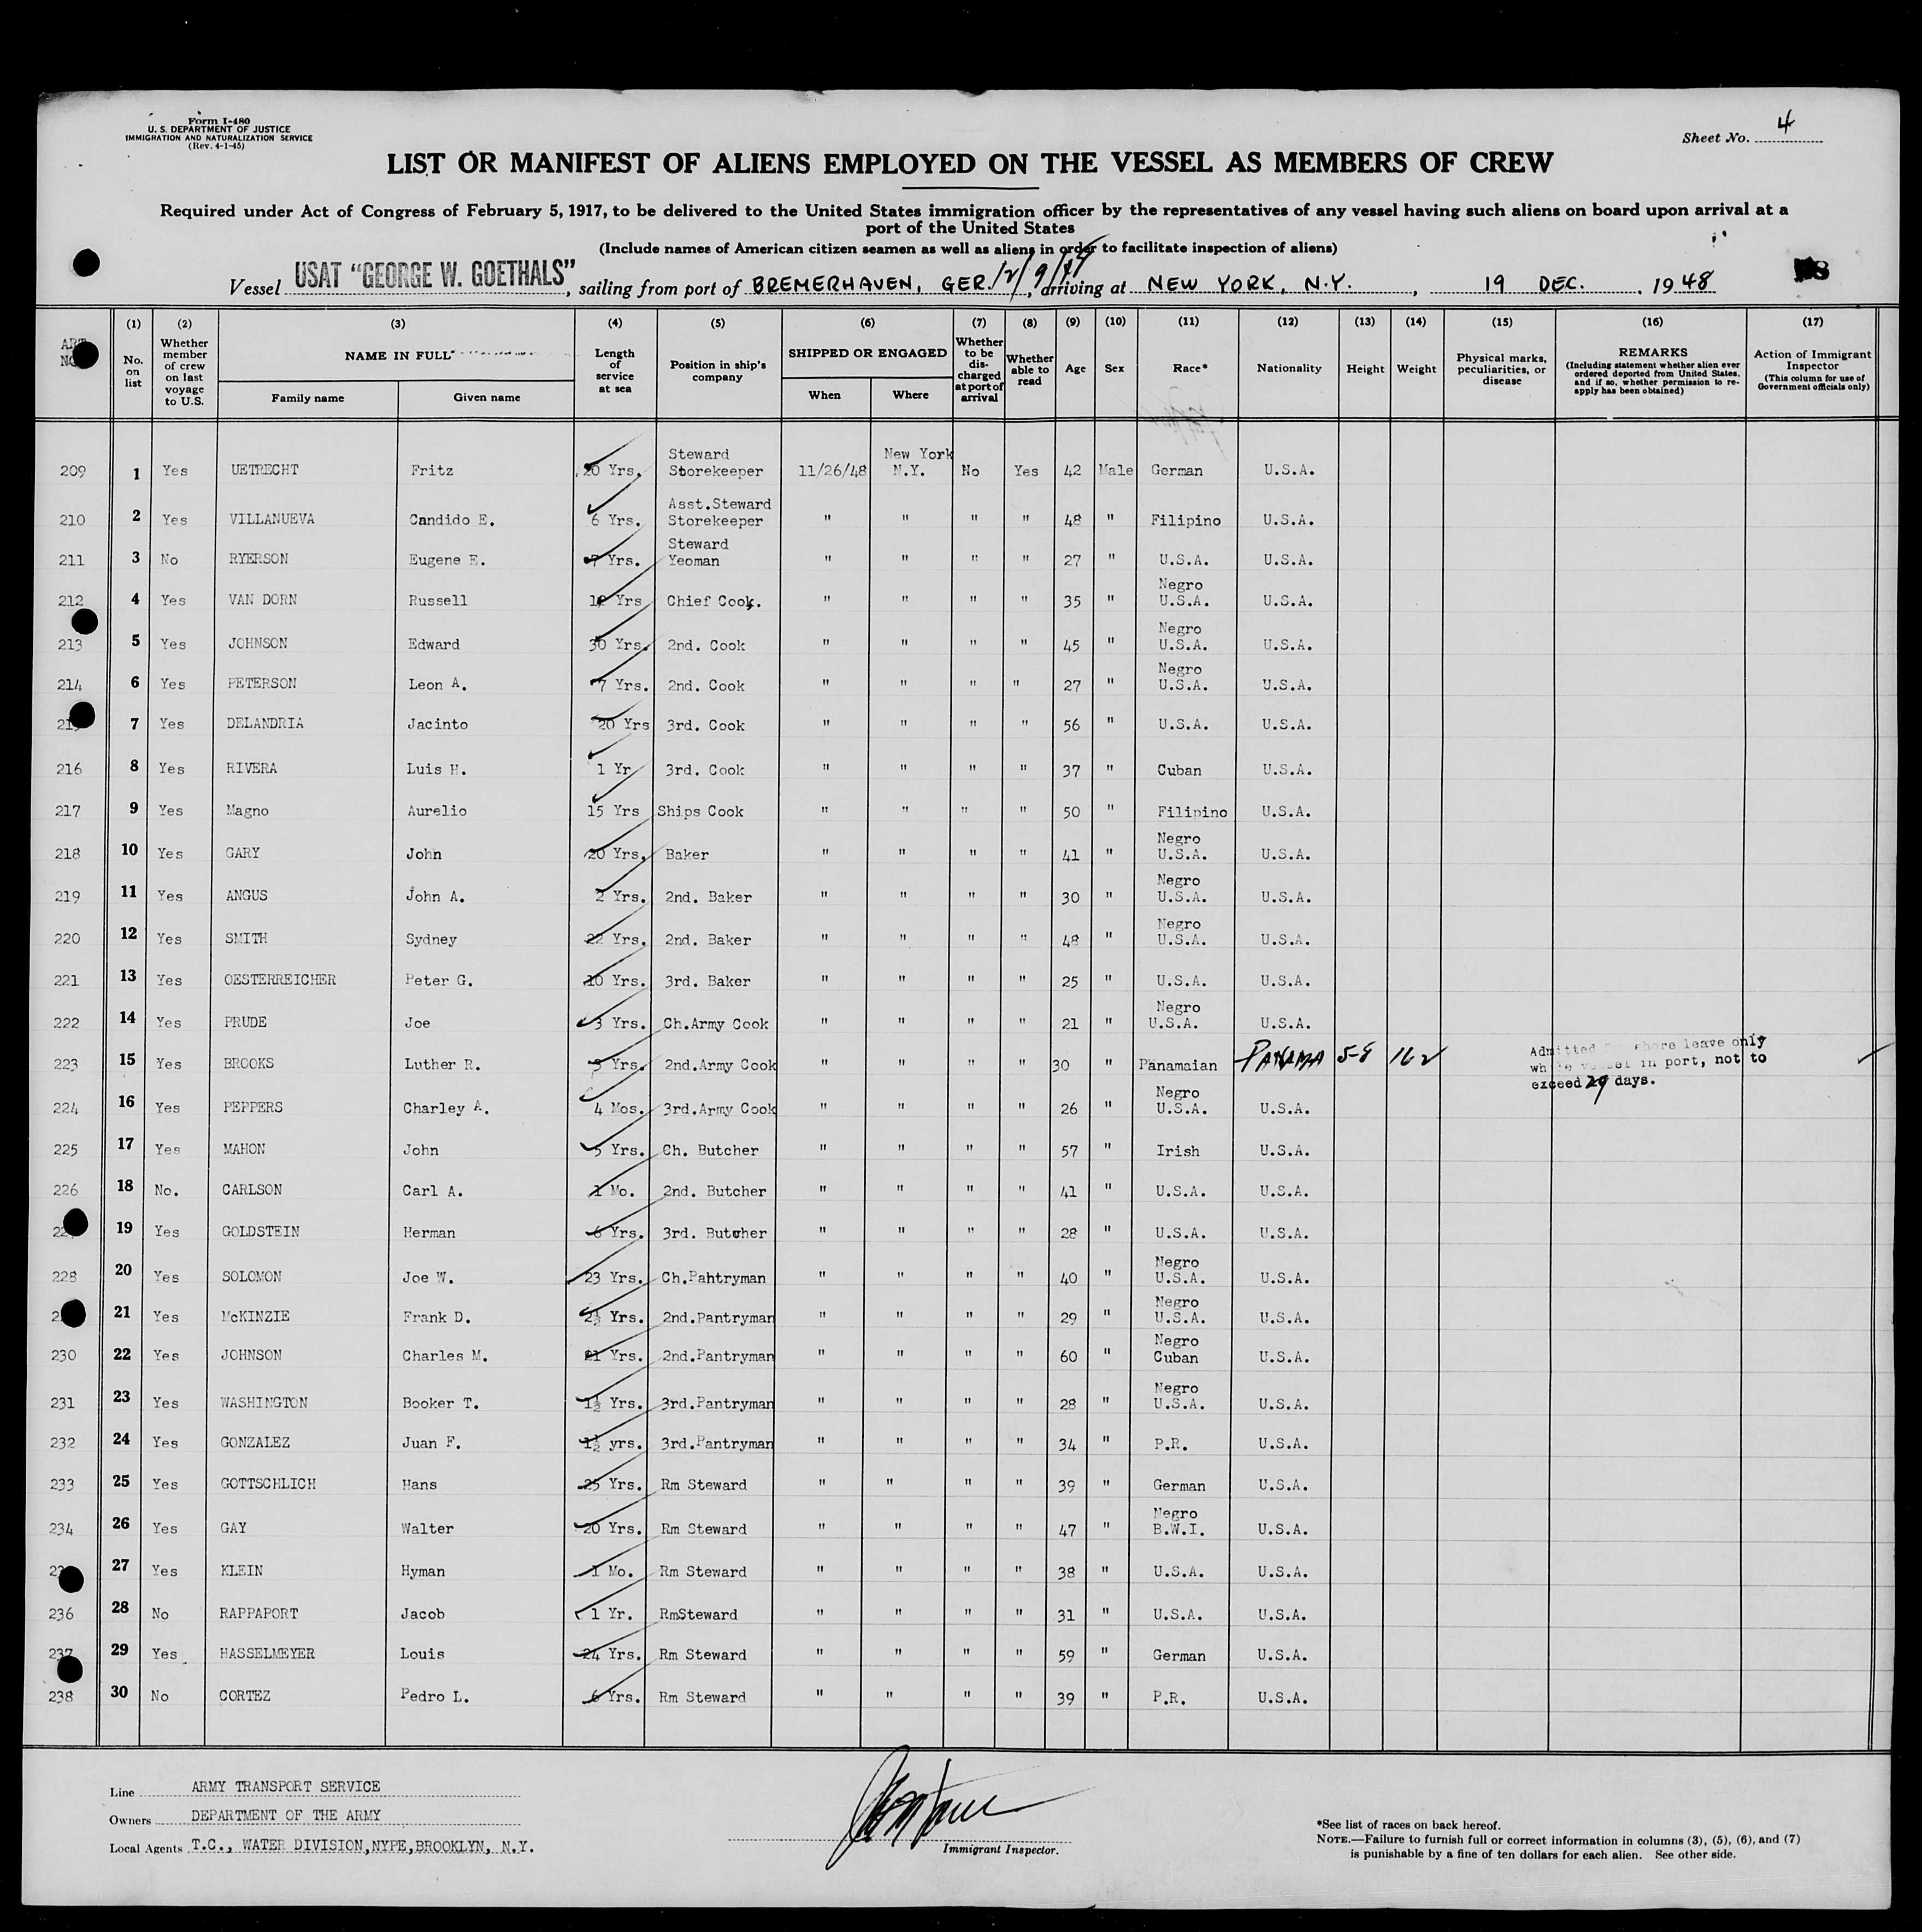 Form I-480
U. S. DEPARTMENT OF JUSTICE
IMMIGRATION AND NATURALIZATION SERVICE
(Rev. 4-1-45)
Sheet No. 4
LIST OR MANIFEST OF ALIENS EMPLOYED ON THE VESSEL AS MEMBERS OF CREW
Required under Act of Congress of February 5, 1917, to be delivered to the United States immigration officer by the representatives of any vessel having such aliens on board upon arrival at a
port of the United States
(Include names of American citizen seamen as well as aliens in order to facilitate inspection of aliens)
Vessel USAT "GEORGE W. GOETHALS", sailing from port of BREMERHAVEN, GER. 12/9/48, arriving at NEW YORK, N.Y., 19 DEC., 1948
(1) No. on list (2) Whether member of crew on last voyage to U.S. (3) NAME IN FULL Family name Given name (4) Length of service at sea (5) Position in ship's company (6) SHIPPED OR ENGAGED When Where (7) Whether to be discharged at port of arrival (8) Whether able to read (9) Age (10) Sex (11) Race* (12) Nationality (13) Height (14) Weight (15) Physical marks, peculiarities, or disease (16) REMARKS (Including statement whether alien ever ordered deported from United States, and if so, whether permission to re-apply has been obtained) (17) Action of Immigrant Inspector (This column for use of Government officials only)
209 1 Yes UETRECHT Fritz 20 Yrs. Steward Storekeeper 11/26/48 New York N.Y. No Yes 42 Male German U.S.A.
210 2 Yes VILLANUEVA Candido E. 6 Yrs. Asst.Steward Storekeeper " " " " 48 " Filipino U.S.A.
211 3 No RYERSON Eugene E. 7 Yrs. Steward Yeoman " " " " 27 " U.S.A. U.S.A.
212 4 Yes VAN DORN Russell Yrs Chief Cook. " " " " 35 " Negro U.S.A. U.S.A.
213 5 Yes JOHNSON Edward 30 Yrs. 2nd. Cook " " " " 45 " Negro U.S.A. U.S.A.
214 6 Yes PETERSON Leon A. 7 Yrs. 2nd. Cook " " " " 27 " Negro U.S.A. U.S.A.
7 Yes DELANDRIA Jacinto 20 Yrs 3rd. Cook " " " " 56 " U.S.A. U.S.A.
216 8 Yes RIVERA Luis H. 1 Yr 3rd. Cook " " " " 37 " Cuban U.S.A.
217 9 Yes Magno Aurelio 15 Yrs Ships Cook " " " " 50 " Filipino U.S.A.
218 10 Yes GARY John 20 Yrs. Baker " " " " 41 " Negro U.S.A. U.S.A.
219 11 Yes ANGUS John A. 2 Yrs. 2nd. Baker " " " " 30 " Negro U.S.A. U.S.A.
220 12 Yes SMITH Sydney 22 Yrs. 2nd. Baker " " " " 48 " Negro U.S.A. U.S.A.
221 13 Yes OESTERREICHER Peter G. 10 Yrs. 3rd. Baker " " " " 25 " U.S.A. U.S.A.
222 14 Yes PRUDE Joe 3 Yrs. Ch.Army Cook " " " " 21 " Negro U.S.A. U.S.A.
223 15 Yes BROOKS Luther R. Yrs. 2nd.Army Cook " " " " 30 " Panamaian PANAMA 5-8 162 Admitted for shore leave only while vessel in port, not to exceed 29 days.
224 16 Yes PEPPERS Charley A. 4 Mos. 3rd.Army Cook " " " " 26 " Negro U.S.A. U.S.A.
225 17 Yes MAHON John 5 Yrs. Ch. Butcher " " " " 57 " Irish U.S.A.
226 18 No. CARLSON Carl A. 1 Mo. 2nd. Butcher " " " " 41 " U.S.A. U.S.A.
19 Yes GOLDSTEIN Herman 6 Yrs. 3rd. Butcher " " " " 28 " U.S.A. U.S.A.
228 20 Yes SOLOMON Joe W. 23 Yrs. Ch.Pahtryman " " " " 40 " Negro U.S.A. U.S.A.
21 Yes McKINZIE Frank D. 2½ Yrs. 2nd.Pantryman " " " " 29 " Negro U.S.A. U.S.A.
230 22 Yes JOHNSON Charles M. 21 Yrs. 2nd.Pantryman " " " " 60 " Negro Cuban U.S.A.
231 23 Yes WASHINGTON Booker T. 1½ Yrs. 3rd.Pantryman " " " " 28 " Negro U.S.A. U.S.A.
232 24 Yes GONZALEZ Juan F. 1½ yrs. 3rd.Pantryman " " " " 34 " P.R. U.S.A.
233 25 Yes GOTTSCHLICH Hans 25 Yrs. Rm Steward " " " " 39 " German U.S.A.
234 26 Yes GAY Walter 20 Yrs. Rm Steward " " " " 47 " Negro B.W.I. U.S.A.
27 Yes KLEIN Hyman 1 Mo. Rm Steward " " " " 38 " U.S.A. U.S.A.
236 28 No RAPPAPORT Jacob 1 Yr. RmSteward " " " " 31 " U.S.A. U.S.A.
237 29 Yes HASSELMEYER Louis 24 Yrs. Rm Steward " " " " 59 " German U.S.A.
238 30 No CORTEZ Pedro L. 6 Yrs. Rm Steward " " " " 39 " P.R. U.S.A.
Line ARMY TRANSPORT SERVICE
Owners DEPARTMENT OF THE ARMY
Local Agents T.C., WATER DIVISION,NYPE,BROOKLYN, N.Y.
Immigrant Inspector.
*See list of races on back hereof.
NOTE.—Failure to furnish full or correct information in columns (3), (5), (6), and (7)
is punishable by a fine of ten dollars for each alien. See other side.